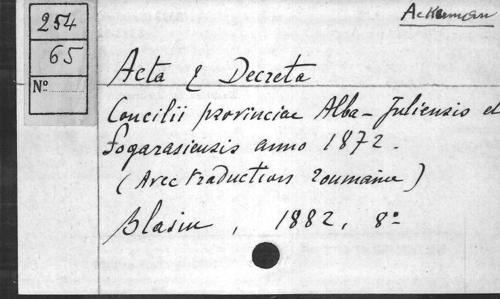 254
65
Nº
Ackerman
Acta & Decreta
Concilii provinciae Alba-Juliensis et
Fogarasiensis anno 1872.
(Avec traduction roumaine)
Blasiu, 1882, 8º